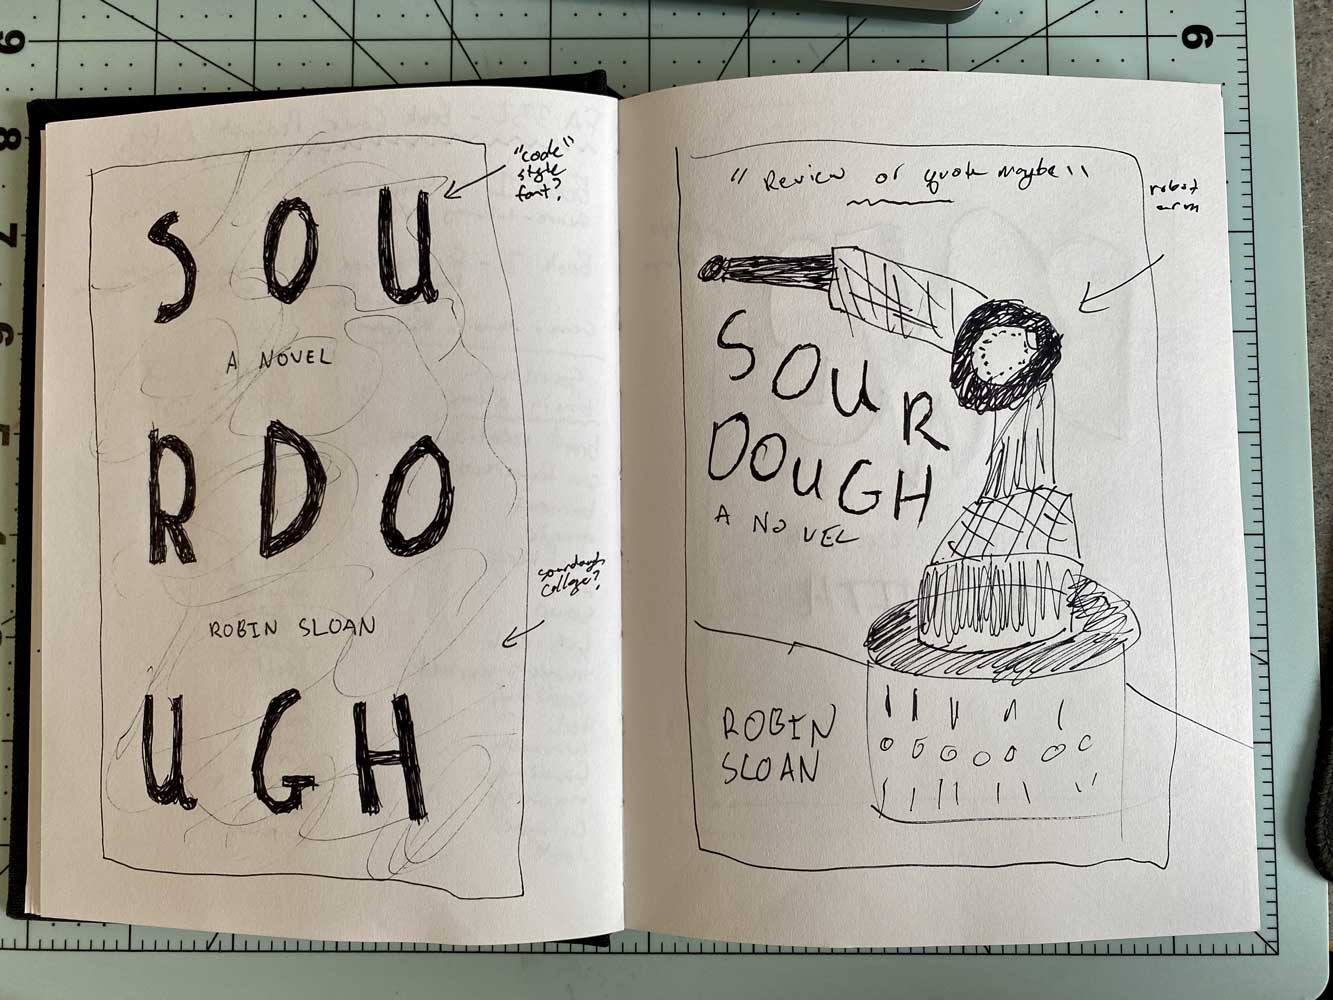 SOU
A NOVEL
RDO
ROBIN SLOAN
UGH
"code"
style
font?
sourdough
collage?
"Review or quote maybe"
robot
arm
SOUR
DOUGH
A NOVEL
ROBIN
SLOAN
9
8
7
6
5
6